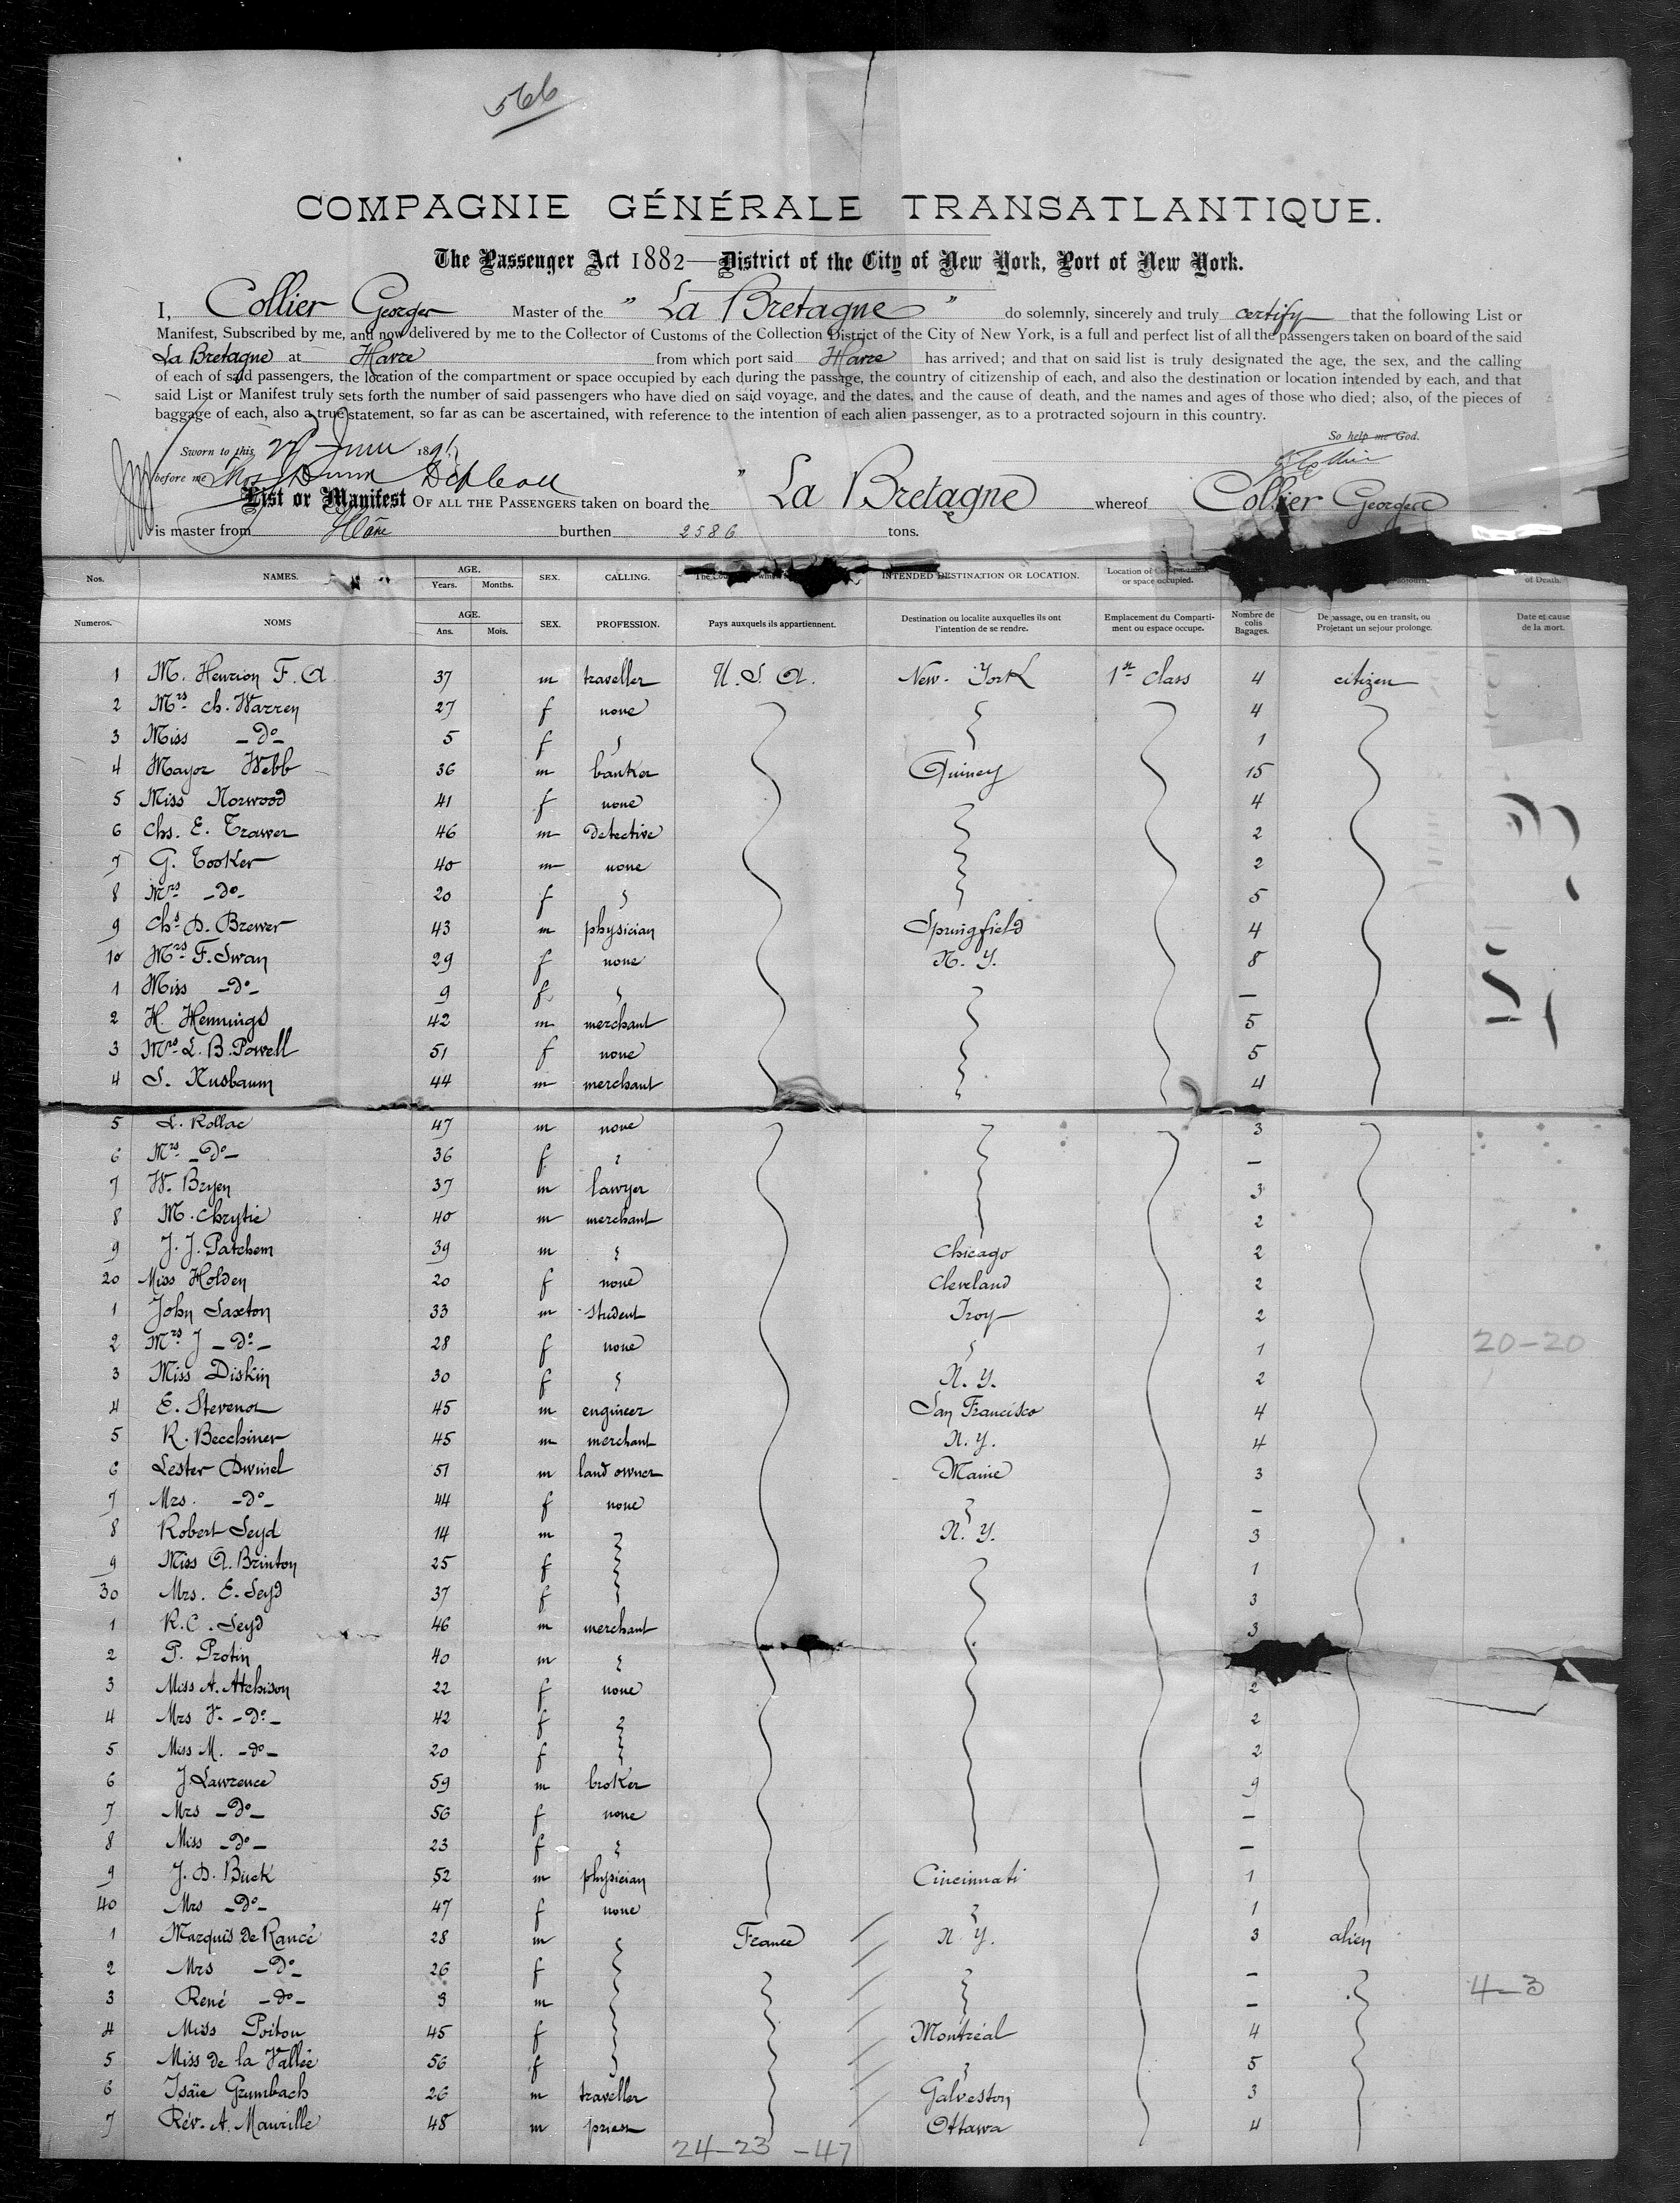 566
COMPAGNIE GÉNÉRALE TRANSATLANTIQUE.
The Passenger Act 1882—District of the City of New York, Port of New York.
I, Collier Georges Master of the " La Bretagne " do solemnly, sincerely and truly certify that the following List or
Manifest, Subscribed by me, and now delivered by me to the Collector of Customs of the Collection District of the City of New York, is a full and perfect list of all the passengers taken on board of the said
La Bretagne at Havre from which port said Havre has arrived; and that on said list is truly designated the age, the sex, and the calling
of each of said passengers, the location of the compartment or space occupied by each during the passage, the country of citizenship of each, and also the destination or location intended by each, and that
said List or Manifest truly sets forth the number of said passengers who have died on said voyage, and the dates, and the cause of death, and the names and ages of those who died; also, of the pieces of
baggage of each, also a true statement, so far as can be ascertained, with reference to the intention of each alien passenger, as to a protracted sojourn in this country.
So help me God.
Sworn to this June 1891
before me Thos Dunn
List or Manifest OF ALL THE PASSENGERS taken on board the " La Bretagne whereof Collier Georges
is master from Havre burthen 2586 tons.
Nos. NAMES. AGE. Years. Months. SEX. CALLING. INTENDED DESTINATION OR LOCATION. Location of or space occupied. of Death.
Numeros. NOMS AGE. Ans. Mois. SEX. PROFESSION. Pays auxquels ils appartiennent. Destination ou localite auxquelles ils ont l'intention de se rendre. Emplacement du Comparti-ment ou espace occupe. Nombre de colis Bagages. De passage, ou en transit, ou Projetant un sejour prolonge. Date et cause de la mort.
1 M. Henrion F. A. 37 m traveller U. S. A. New. York 1st class 4 citizen
2 Mrs ch. Warren 27 f none 4
3 Miss -do- 5 f 1
4 Mayor Webb 36 m banker Quincy 15
5 Miss Norwood 41 f none 4
6 Chs. E. Trawer 46 m detective 2
7 G. Tooker 40 m none 2
8 Mrs -do- 20 f 5
9 Chs D. Brewer 43 m physician Springfield 4
10 Mrs F. Swan 29 f none N. Y. 8
1 Miss -do- 9 f —
2 H. Hennings 42 m merchant 5
3 Mrs L. B. Powell 51 f none 5
4 S. Nusbaum 44 m merchant 4
5 L. Rollac 47 m none 3
6 Mrs -do- 36 f —
7 W. Bryen 37 m lawyer 3
8 M. Chrytie 40 m merchant 2
9 J. J. Patchem 39 m Chicago 2
20 Miss Holden 20 f none Cleveland 2
1 John Saxton 33 m student Troy 2
2 Mrs J -do- 28 f none 1 20-20
3 Miss Diskin 30 f N. Y. 2
4 E. Stevenot 45 m engineer San Francisco 4
5 R. Becchiner 45 m merchant N. Y. 4
6 Lester Dwinel 51 m land owner Maine 3
7 Mrs. -do- 44 f none —
8 Robert Seyd 14 m N. Y. 3
9 Miss A. Brinton 25 f 1
30 Mrs. E. Seyd 37 f 3
1 R. C. Seyd 46 m merchant 3
2 P. Protin 40 m
3 Miss A. Atchison 22 f none 2
4 Mrs V. -do- 42 f 2
5 Miss M. -do- 20 f 2
6 J. Lawrence 59 m broker 9
7 Mrs -do- 56 f none —
8 Miss -do- 23 f —
9 J. D. Buck 52 m physician Cincinnati 1
40 Mrs -do- 47 f none 1
1 Marquis de Rancé 28 m France N. Y. 3 alien
2 Mrs -do- 26 f —
3 René -do- 3 m — 4-3
4 Miss Poitou 45 f Montréal 4
5 Miss de la Vallée 56 f 5
6 Isaïe Grumbach 26 m traveller Galveston 3
7 Rév. A. Maurille 48 m priest Ottawa 4
24-23 -47